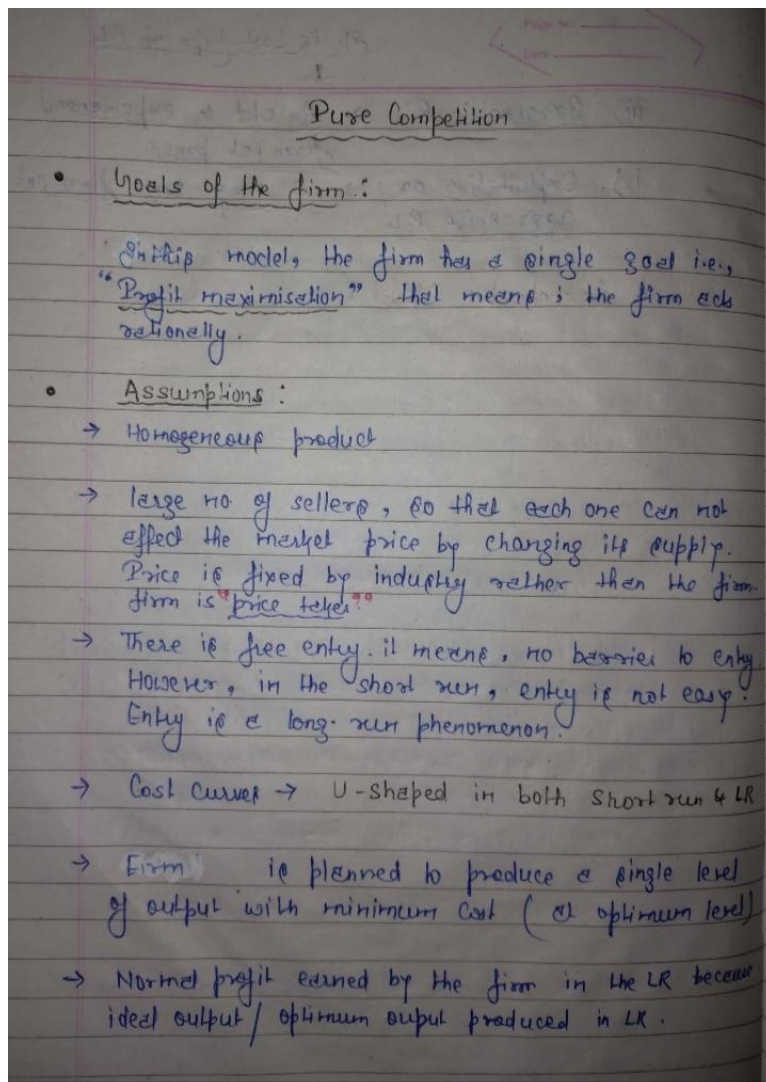 Pure Competition
• Goals of the firm :
In this model, the firm has a single goal i.e.,
"Profit maximisation" that means ; the firm acts
rationally.
• Assumptions :
→ Homogeneous product
→ large no of sellers, so that each one can not
affect the market price by changing its supply.
Price is fixed by industry rather than the firm.
firm is "price taker"
→ There is free entry. it means, no barrier to entry.
However, in the short run, entry is not easy.
Entry is a long-run phenomenon.
→ Cost Curves → U-shaped in both Short run & LR
→ Firm is planned to produce a single level
of output with minimum Cost ( at optimum level)
→ Normal profit earned by the firm in the LR because
ideal output / optimum ouput produced in LR .